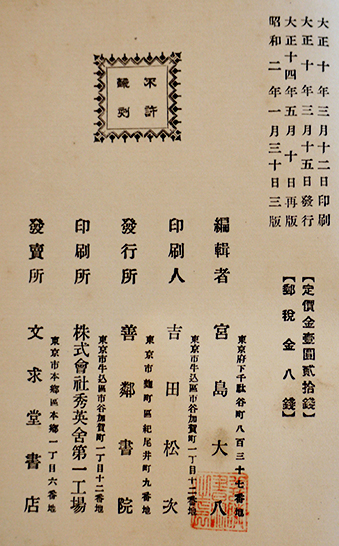 大正十年三月十二日印刷
大正十年三月十五日發行
大正十四年五月十日再版
昭和二年一月三十日三版
【定價金壹圓貳拾錢】
【郵稅金八錢】
不許
飜刻
東京府下千駄谷町八百三十七番地
編輯者 宮島大八
東京市牛込區市谷加賀町一丁目十二番地
印刷人 吉田松次
東京市麴町區紀尾井町九番地
發行所 善鄰書院
東京市牛込區市谷加賀町一丁目十二番地
印刷所 株式會社秀英舍第一工場
東京市本鄉區本鄉一丁目六番地
發賣所 文求堂書店